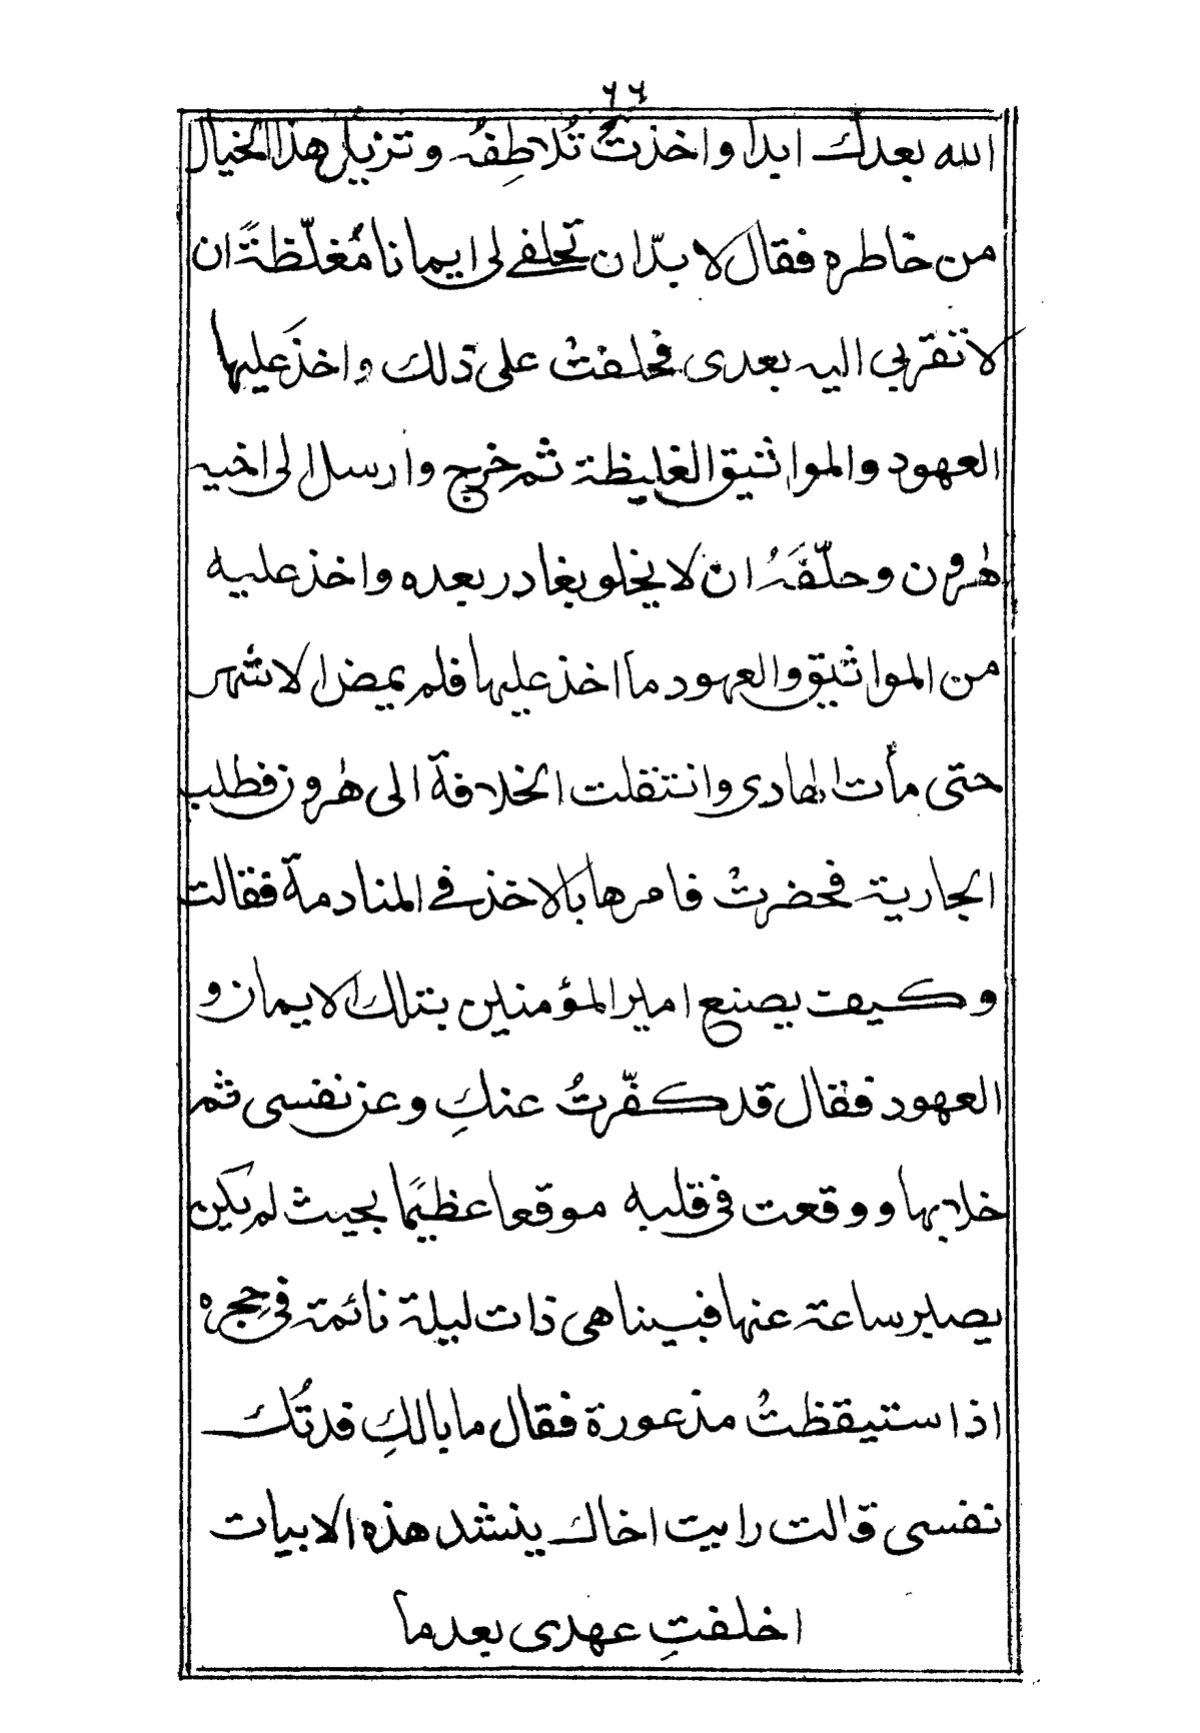 ٦٦
الله بعدك ابدا واخذتْ تُلاطِفهُ وتزيل هذا الخيال
من خاطره فقال لا بدّ ان تحلفے لی ايمانا مُغلّظةً ان
لا تقربی اليه بعدی فحلفتْ علی ذلك واخذَ عليها
العهود والمواثيق الغليظة ثم خرج وارسل الی اخيه
هٰرون وحلّفَهُ ان لا يخلو بغادر بعده واخذ عليه
من المواثيق والعهود ما اخذ عليها فلم يمض الا شهر
حتی مات الهادی وانتقلت الخلافة الی هٰرون فطلب
الجارية فحضرتْ فامرها بالاخذ فے المنادمة فقالت
وكيف يصنع امير المؤمنين بتلك الايمان و
العهود فقال قد كفّرتُ عنكِ وعن نفسی ثم
خلا بها ووقعت فی قلبه موقعا عظيَما بحيث لم يكن
يصبر ساعة عنها فبينا هی ذات ليلة نائمة فی حِجره
اذا ستيقظتْ مذعورة فقال ما بالكِ فدتُك
نفسی قالت رايت اخاك ينشد هذه الابيات
اخلفتِ عهدی بعد ما